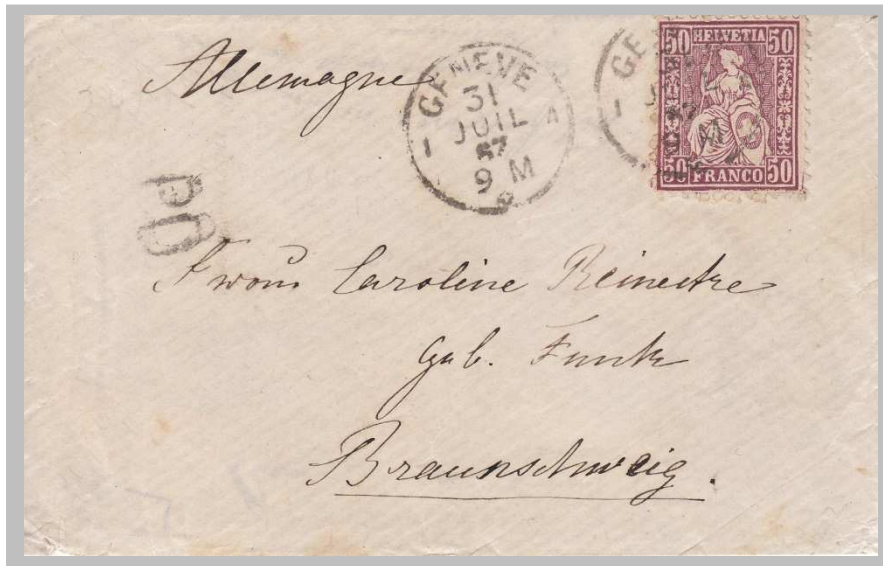 Allemagne
GENEVE
31
JUIL
67
9 M
1 A
50 HELVETIA 50
50 FRANCO 50
PD
Caroline Reinecke
geb. Funk
Braunschweig.